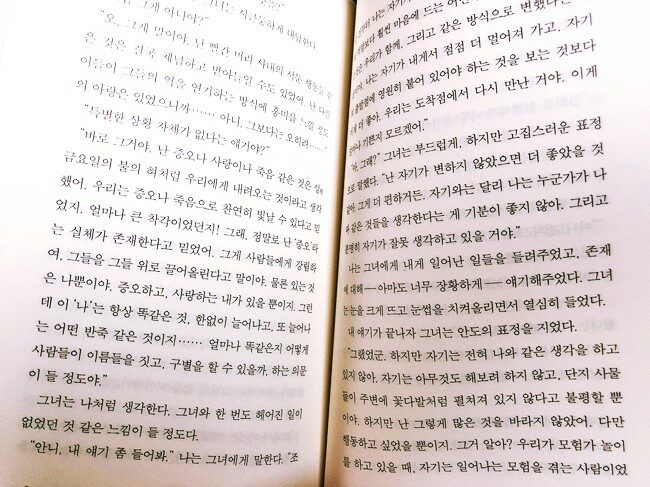 그녀는 시큰둥하게 대답한다.
그게 아니야?"
"오, 그게 말이야, 난 빨간 머리 사내의 서툰 행동을
은 것은 결국 체념하고 받아들일 수도 있었어. 난 다만
이들이 그들의 역을 연기하는 방식에 흥미를 느낄 정도
의 아량은 있었으니까…… 아니, 그보다는 오히려……"
"특별한 상황 자체가 없다는 얘기야?"
"바로 그거야. 난 증오나 사랑이나 죽음 같은 것은 성
금요일의 불의 혀처럼 우리에게 내려오는 것이라고 생각
했어. 우리는 증오나 죽음으로 찬연히 빛날 수 있다고 믿
었지. 얼마나 큰 착각이었던지! 그래, 정말로 난 '증오'라
는 실체가 존재한다고 믿었어. 그게 사람들에게 강림하
여, 그들을 그들 위로 끌어올린다고 말이야. 물론 있는 것
은 나뿐이야. 증오하고, 사랑하는 내가 있을 뿐이지. 그런
데 이 '나'는 항상 똑같은 것, 한없이 늘어나고, 또 늘어나
는 어떤 반죽 같은 것이지…… 얼마나 똑같은지 어떻게
사람들이 이름들을 짓고, 구별을 할 수 있을까, 하는 의문
이 들 정도야."
그녀는 나처럼 생각한다. 그녀와 한 번도 헤어진 일이
없었던 것 같은 느낌이 들 정도다.
"안니, 내 얘기 좀 들어봐." 나는 그녀에게 말한다. "조
나는 자기가
훨씬 마음에 드는 어떤
우리가 함께, 그리고 같은 방식으로 변했다는
나는 자기가 내게서 점점 더 멀어져 가고, 자기
출발점에 영원히 붙어 있어야 하는 것을 보는 것보다
더 좋아. 우리는 도착점에서 다시 만난 거야. 이게
기쁜지 모르겠어."
"아, 그래?" 그녀는 부드럽게, 하지만 고집스러운 표정
으로 말했다. "난 자기가 변하지 않았으면 더 좋았을 것
같아. 그게 더 편하거든. 자기와는 달리 나는 누군가가 나
와 같은 것들을 생각한다는 게 기분이 좋지 않아. 그리고
분명히 자기가 잘못 생각하고 있을 거야."
나는 그녀에게 내게 일어난 일들을 들려주었고, 존재
에 대해 ― 아마도 너무 장황하게 ― 얘기해주었다. 그녀
는 눈을 크게 뜨고 눈썹을 치켜올리면서 열심히 들었다.
내 얘기가 끝나자 그녀는 안도의 표정을 지었다.
"그랬었군. 하지만 자기는 전혀 나와 같은 생각을 하고
있지 않아. 자기는 아무것도 해보려 하지 않고, 단지 사물
들이 주변에 꽃다발처럼 펼쳐져 있지 않다고 불평할 뿐
이야. 하지만 난 그렇게 많은 것을 바라지 않았어. 다만
행동하고 싶었을 뿐이지. 그거 알아? 우리가 모험가 놀이
를 하고 있을 때, 자기는 일어나는 모험을 겪는 사람이었